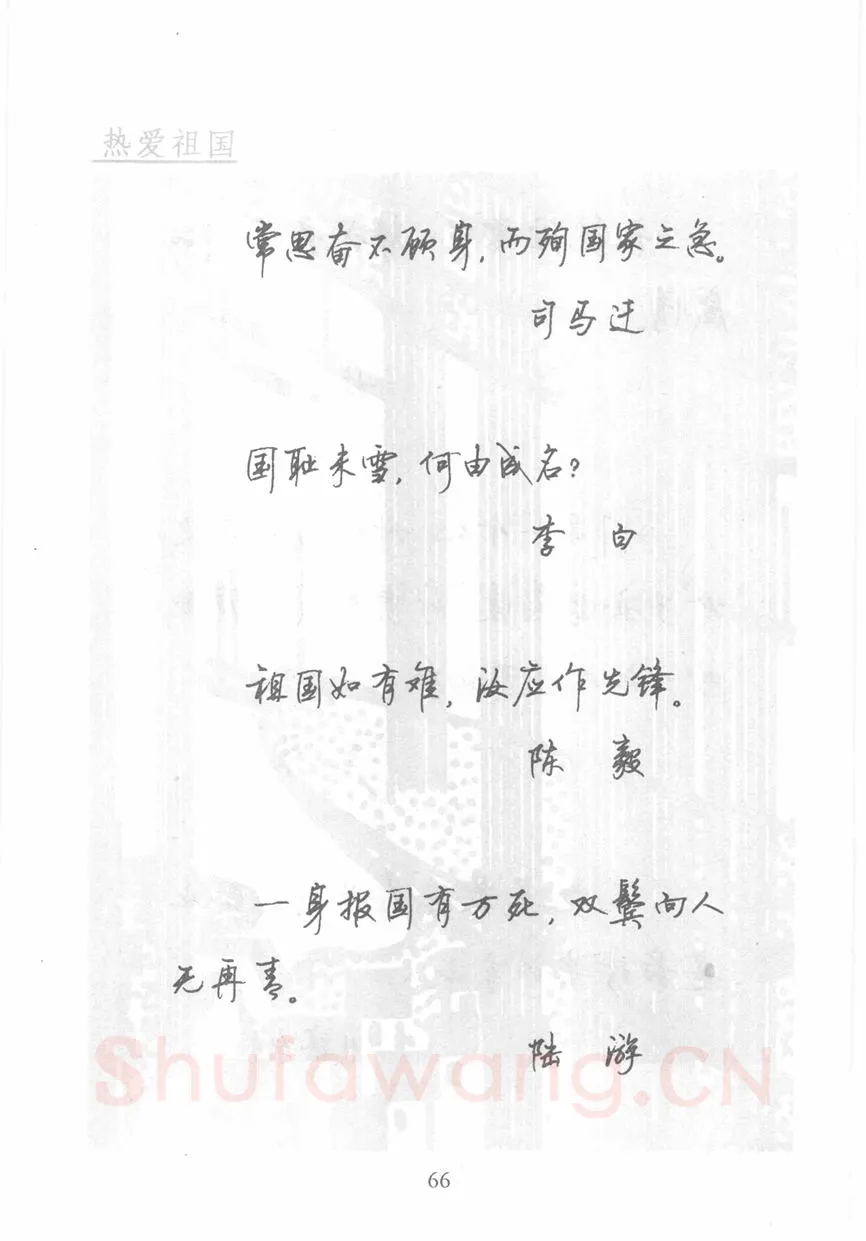 热爱祖国
常思奋不顾身,而殉国家之急。
司马迁
国耻未雪,何由成名?
李 白
祖国如有难,汝应作先锋。
陈 毅
一身报国有万死,双鬓向人
无再青。
陆 游
Shufawang.CN
66